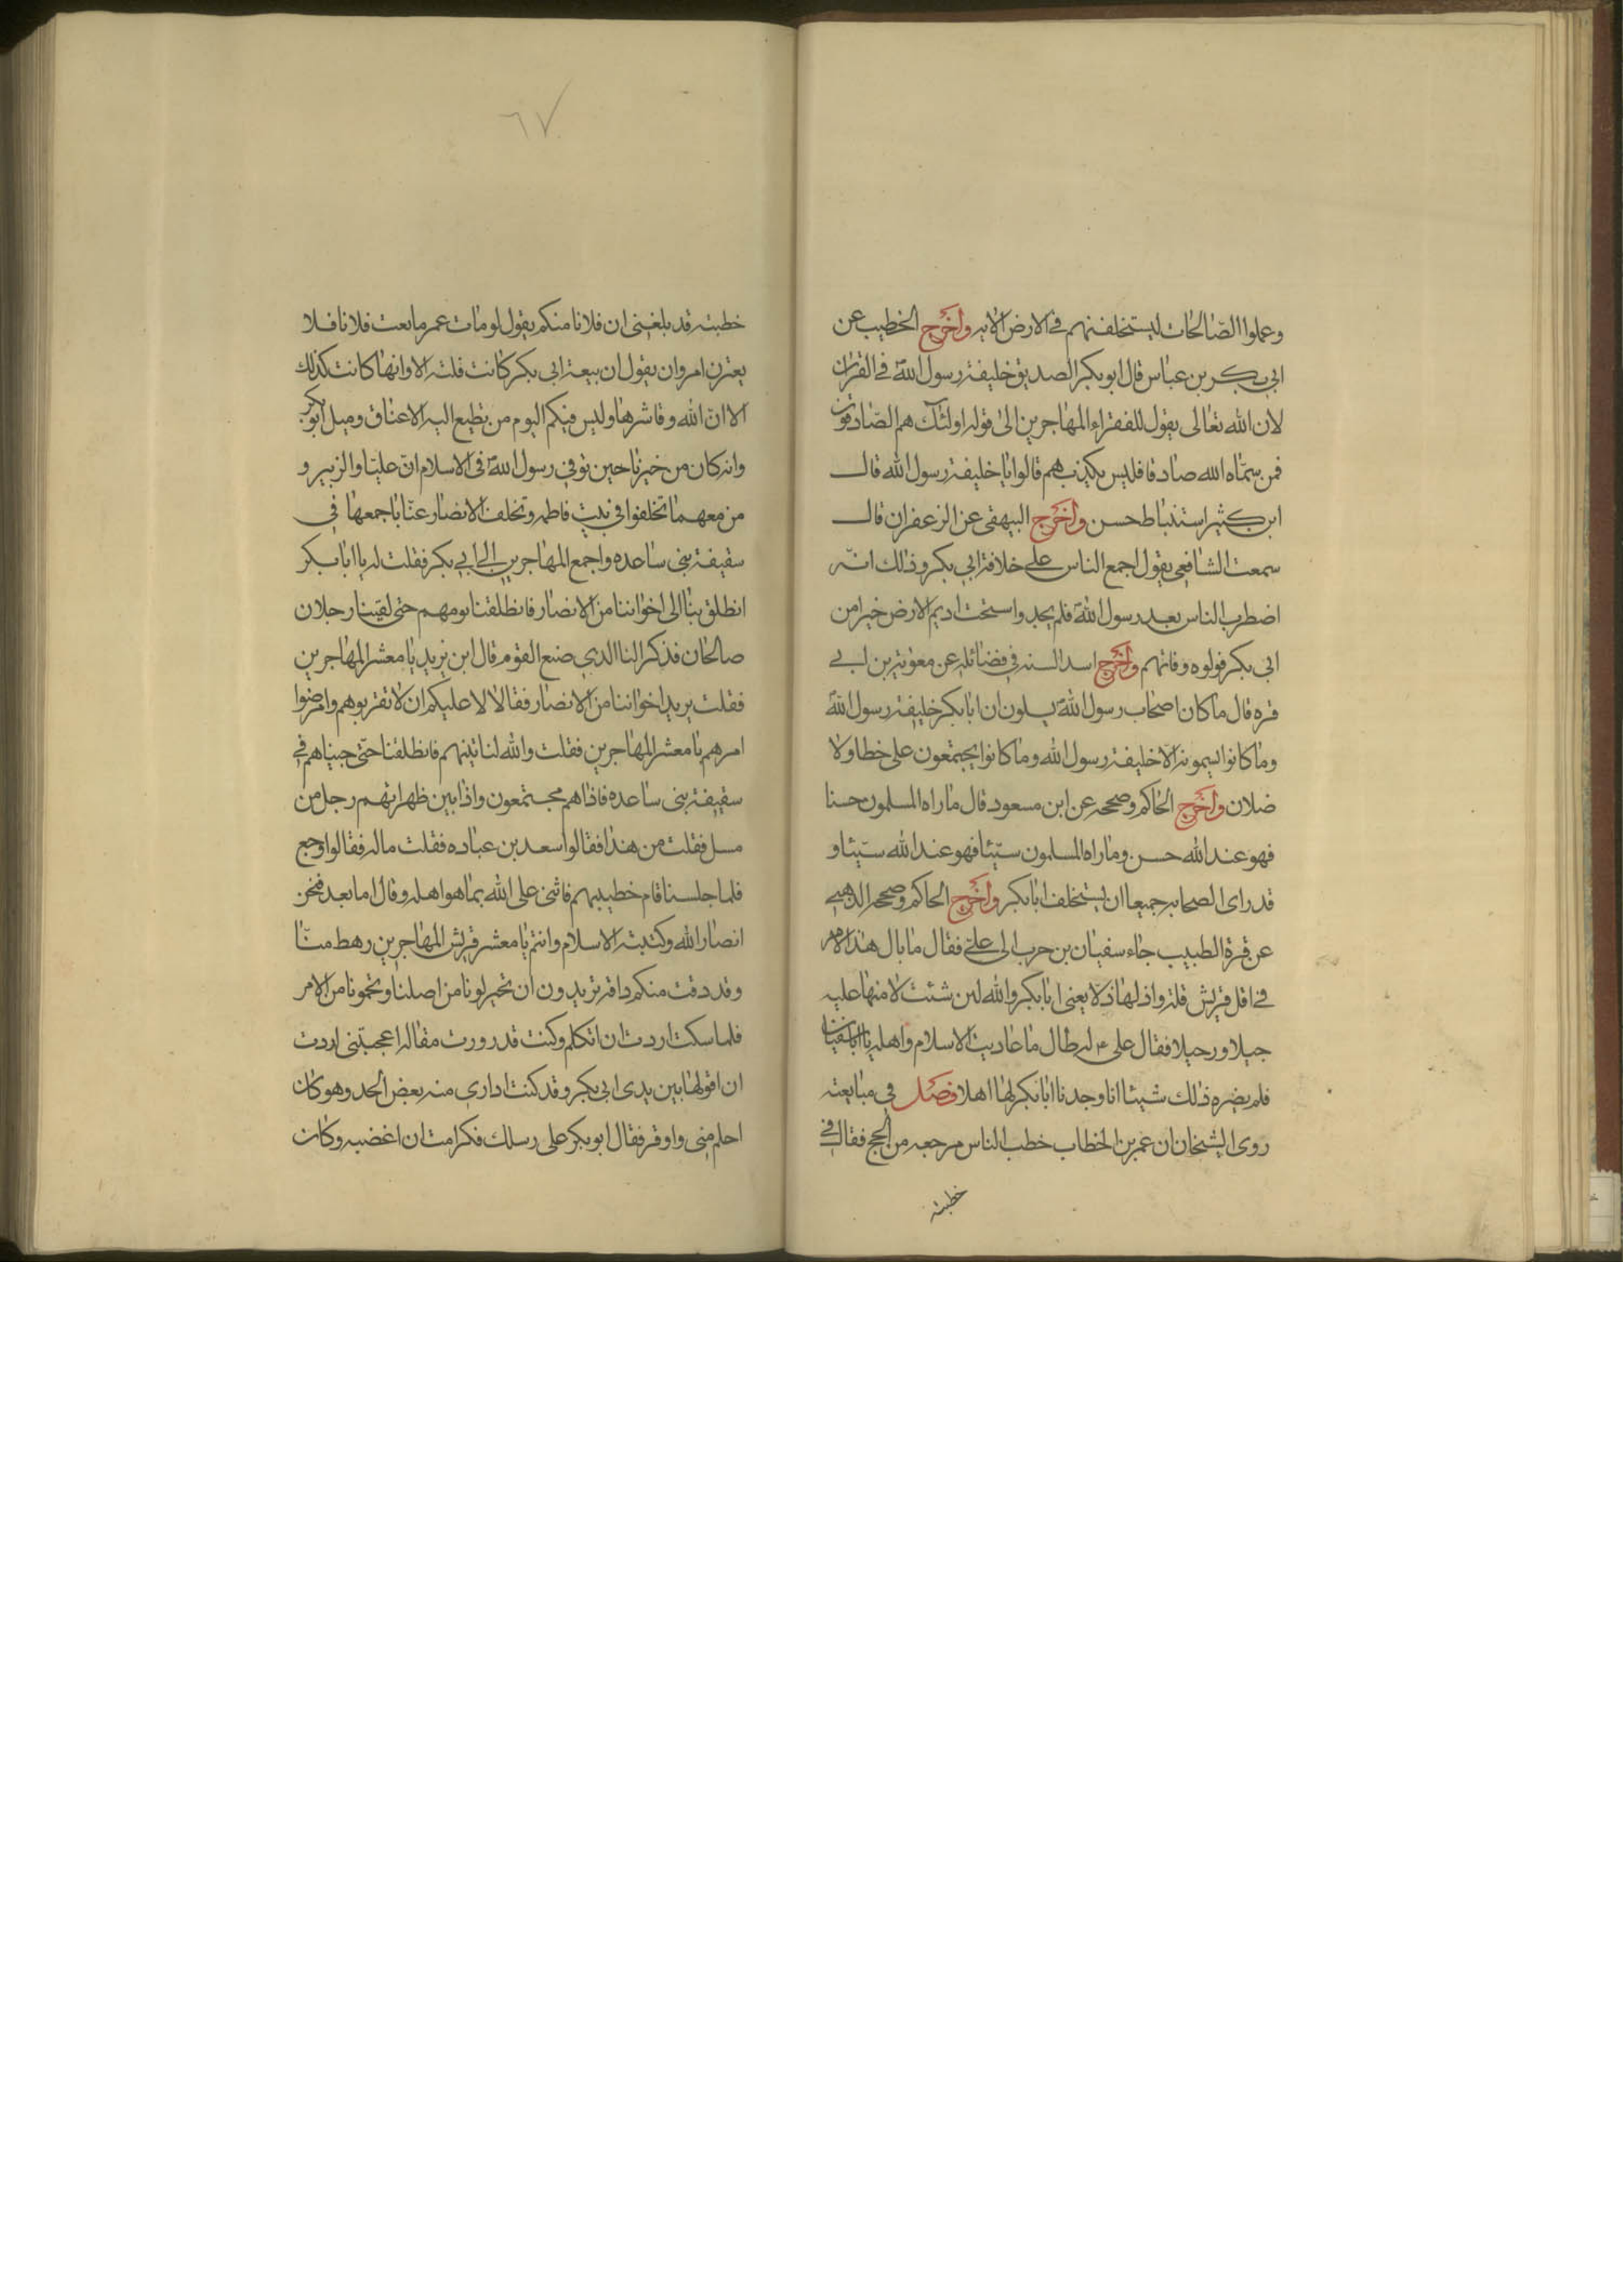 وعملوا الصّالحات ليستخلفنهم في الارض الايه واخرج الخطيب عن
ابي بكر بن عباس قال ابو بكر الصديق خليفة رسول اللهّ في القران
لان الله تعالى يقول للفقراء المهاجرين الى قوله اولئك هم الصّادقون
فمن سمّاه الله صادقا فليس يكذب هم قالوا يا خليفة رسول الله قال
ابن كثير استنباط حسن واخرج البيهقى عن الزعفران قال
سمعت الشافعي يقول اجمع الناس على خلافة ابي بكر وذلك انّه
اضطرب الناس بعد رسول اللهّ فلم يجدوا ستحت اديم الارض خيرا من
ابى بكر فولوه وقاتهم واخرج اسد السنه في فضائله عن معوية بن ابي
قره قال ما كان اصحاب رسول اللهّ يسلون ان ابا بكر خليفة رسول اللهّ
وما كانوا يسمونه الا خليفة رسول الله وما كانوا يجتمعون على خطا ولا
ضلان واخرج الحاكم وصححه عن ابن مسعود قال ما راه المسلمون حسنا
فهو عند الله حسن وما راه المسلمون سيّئا فهو عند الله سيّئا و
قد راى الصحابه جميعا ان يستخلف ابا بكر واخرج الحاكم وصححه الذهبي
عن قرة الطبيب جاء سفيان بن حرب الى علىّ فقال ما بال هذا الامر
في اقل قريش قلة واذلها ذلا يعنى ابا بكر والله لين شئت لامنها عليه
جيلا ورحيلا فقال على ع له طال ما عاديت الاسلام واهله يا ابا سفيان
فلم يضره ذلك شيئا انا وجدنا ابا بكر لها اهلا فصل في مبايعته
روى الشيخان ان عمر بن الخطاب خطب الناس مرجعه من الحج فقال في
خطبته
٦٧
خطبته قد بلغنى ان فلانا منكم يقول لو مات عمر ما بعت فلانا فلا
يعترن امرو ان يقول ان بيعة ابى بكر كانت فلته الا وانها كانت كذلك
الا ان الله وقا شرها وليس فيكم اليوم من تطيع اليه الاعناق وميل ابو بكر
وانه كان من خيرنا حين توفي رسول اللهّ في الاسلام انّ عليّا والزبير و
من معهما تخلفوا في بيت فاطمه وتخلف الانصار عنّا باجمعها في
سقيفة بنى ساعده واجمع المهاجرين الى ابي بكر فقلت له يا ابا بكر
انطلق بنا الى اخواننا من الانصار فانطلقنا نومهم حتى لقينا رجلان
صالحان فذكر النا الذي صنع القوم قال ابن تريد يا معشر المهاجرين
فقلت يريد اخواننا من الانصار فقالا لا عليكم ان لا تقربوهم وامرضوا
امرهم يا معشر المهاجرين فقلت والله لناتينهم فانطلقنا حتى جيناهم في
سقيفة بنى ساعده فاذا هم مجتمعون واذا بين ظهرانهم رجل من
مسل فقلت من هذا فقالوا سعد بن عباده فقلت ماله فقالوا وجع
فلما جلسنا قام خطيبهم فاثنى على الله بما هو اهله وقال اما بعد فنحن
انصار الله وكتيبة الاسلام وانتم يا معشر قريش المهاجرين رهط منّا
وقد دقت منكم دافه تريدون ان تخيرلونا من اصلنا وتحمونا من الامر
فلما سكت اردت ان اتكلم وكنت قد رورت مقاله اعجبتنى اردت
ان اقولها بين يدى ابى بكر وقد كنت ادارى منه بعض الحد وهو كان
احلم منى واوقر فقال ابو بكر على رسلك فكرامت ان اغضبه وكان